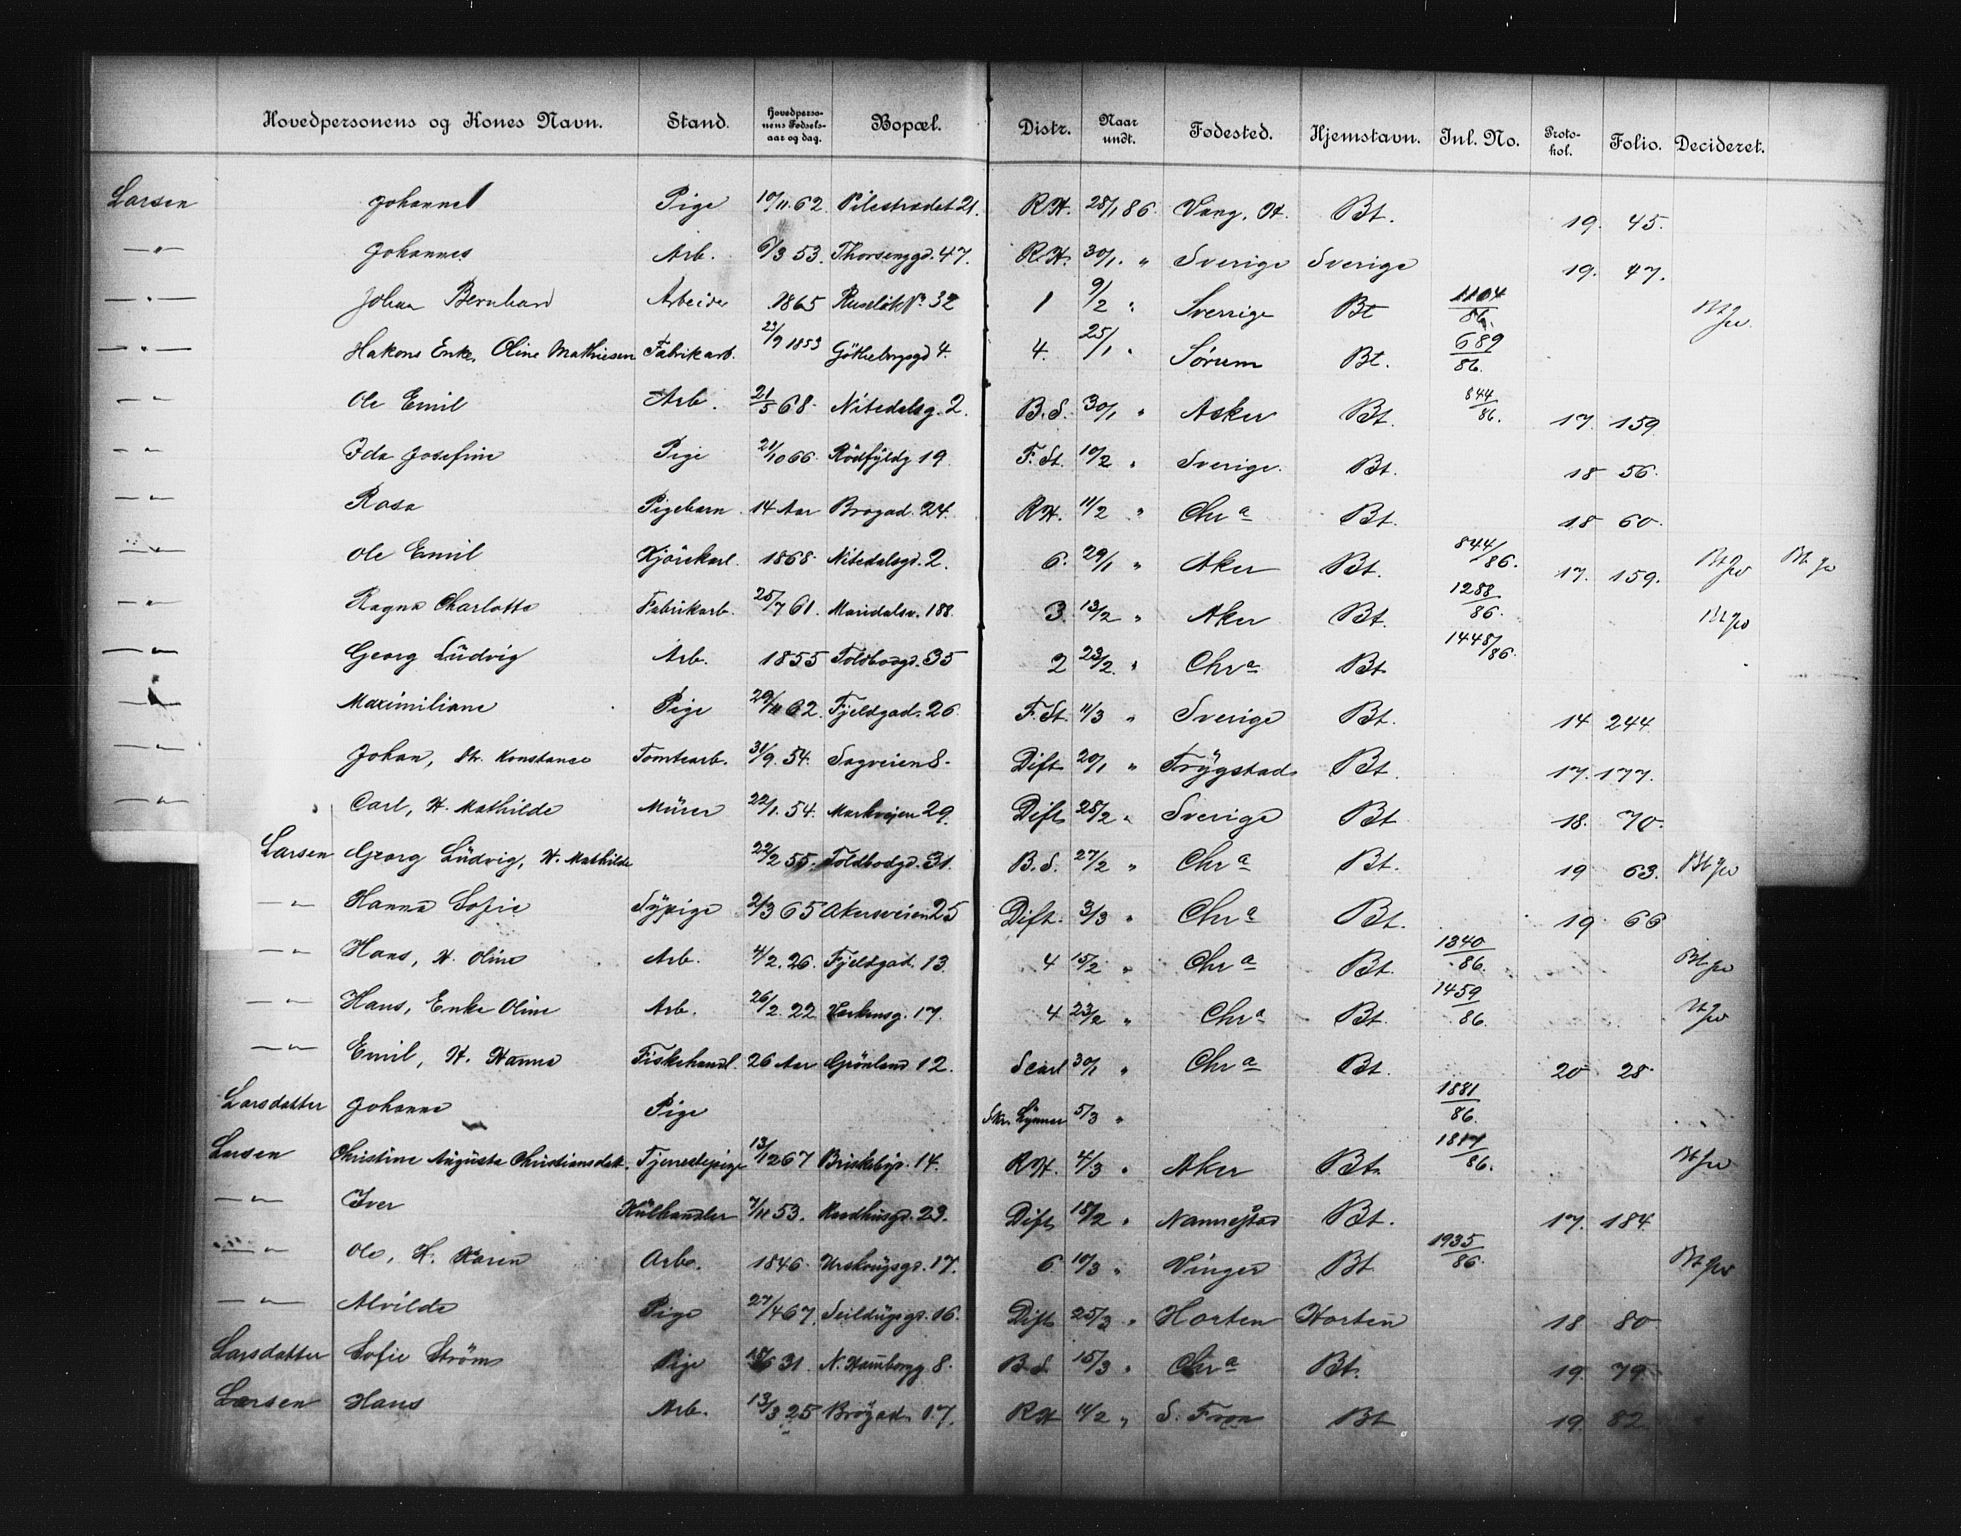 Hovedpersonens og Kones Navn. Stand. Hovedpersonens Fødsels-aar og dag. Bopæl. Distr. Naar undt. Fødested. Hjemstavn. Inl. No. Protokol. Folio. Decideret.
Larsen Johanne Pige 10/11 62 Pilestrædet 21. R.H. 28/1 86. Vang, H. Bt. 19. 45.
—"— Johannes Arb. 6/3 53. Thorsenggd. 47. R.H. 30/1. " Sverige Sverige 19. 47.
—"— Johan Bernhard Arbeider 1865 Ruseløkv. 32 1 9/2 " Sverrige Bt 1104/86. Bt
—"— Hakons Enke, Oline Mathiesen Fabrikarb. 23/9 1853 Götheborgsgd 4. 4. 25/1 " Sørum Bt. 689/86.
—"— Ole Emil Arb. 21/5 68. Nitedalsg. 2. B.S. 30/1 " Asker Bt. 844/86. 17. 159.
—"— Ida Josefine Pige 21/10 66. Rödfyldg 19 F.St. 10/2 " Sverige. Bt. 18 56.
—"— Rosa Pigebarn 14 Aar Brogad. 24. R.H. 11/2 " Chra Bt. 18 60.
—"— Ole Emil Kjörekarl. 1868. Nitedalsgd. 2. 6. 29/1 " Aker Bt. 844/86. 17. 159. Bt Bt
—"— Ragna Charlotte Fabrikarb. 25/7 61. Maridalsv. 188. 3. 13/2 " Aker Bt. 1288/86. Bt
—"— Georg Lüdvig Arb. 1855 Toldbodgd. 35 2 23/2. " Chra Bt. 1448/86.
—"— Maximiliane Pige 29/11 62. Fjeldgad. 26. F.St. 11/3 " Sverige Bt. 14 244.
—"— Johan, H. Konstance Tomtearb. 31/9. 54. Sagveien 8. Dift 20/1 " Trygstad Bt. 17. 177.
—"— Carl, H. Mathilde Mürer 22/1. 54. Markvejen 29. Dift 28/2 " Sverige Bt 18. 70.
Larsen Georg Lüdvig, H. Mathilde 22/2 55. Toldbodgd. 31. B.S. 27/2 " Chra Bt. 19 63. Bt
—"— Hanna Sofie Sypige 2/3 65 Akersveien 25 Dift. 3/3 " Chra Bt. 19 66
—"— Hans, H. Oline Arb. 4/2. 26. Fjeldgad. 13. 4 15/2 " Chra Bt. 1340/86. Bt
—"— Hans, Enke Oline Arb. 26/2 22 17. 4 23/2 " Chra Bt. 1459/86. Bt
—"— Emil, H. Hanna Fiskehandl. 26 Aar Grönland 12. 30/1 " Chra Bt. 20 28.
Larsdatter Johanne Pige 5/3 " 1881/86.
Larsen Christine Augusta Christiansdatt. Tjenestepige 13/12 67 Briskebyv. 14. R.H. 4/3 " Aker Bt. 1817/86. Bt
—"— Iver Külhandler 7/11 53. Raadhusgd. 23. Dift 18/2 " Nannestad Bt. 17. 184.
—"— Ole, H. Karen Arb. 1846. Urskougsgd. 17. 6. 10/3 " Vinger Bt 1935/86. Bt
—"— Alvilde Pige 27/4 67. Seildugsgd. 16. Dift 25/3 " Horten Horten 18 80
Larsdatter Sofie Strøm Pige 31. N. Hamborgg 8. B.S. 15/3 " Chra Bt. 19. 79
Larsen Hans Arb. 13/3 25 Brogad. 17. R.H 11/2 " S. Fron Bt 19. 82